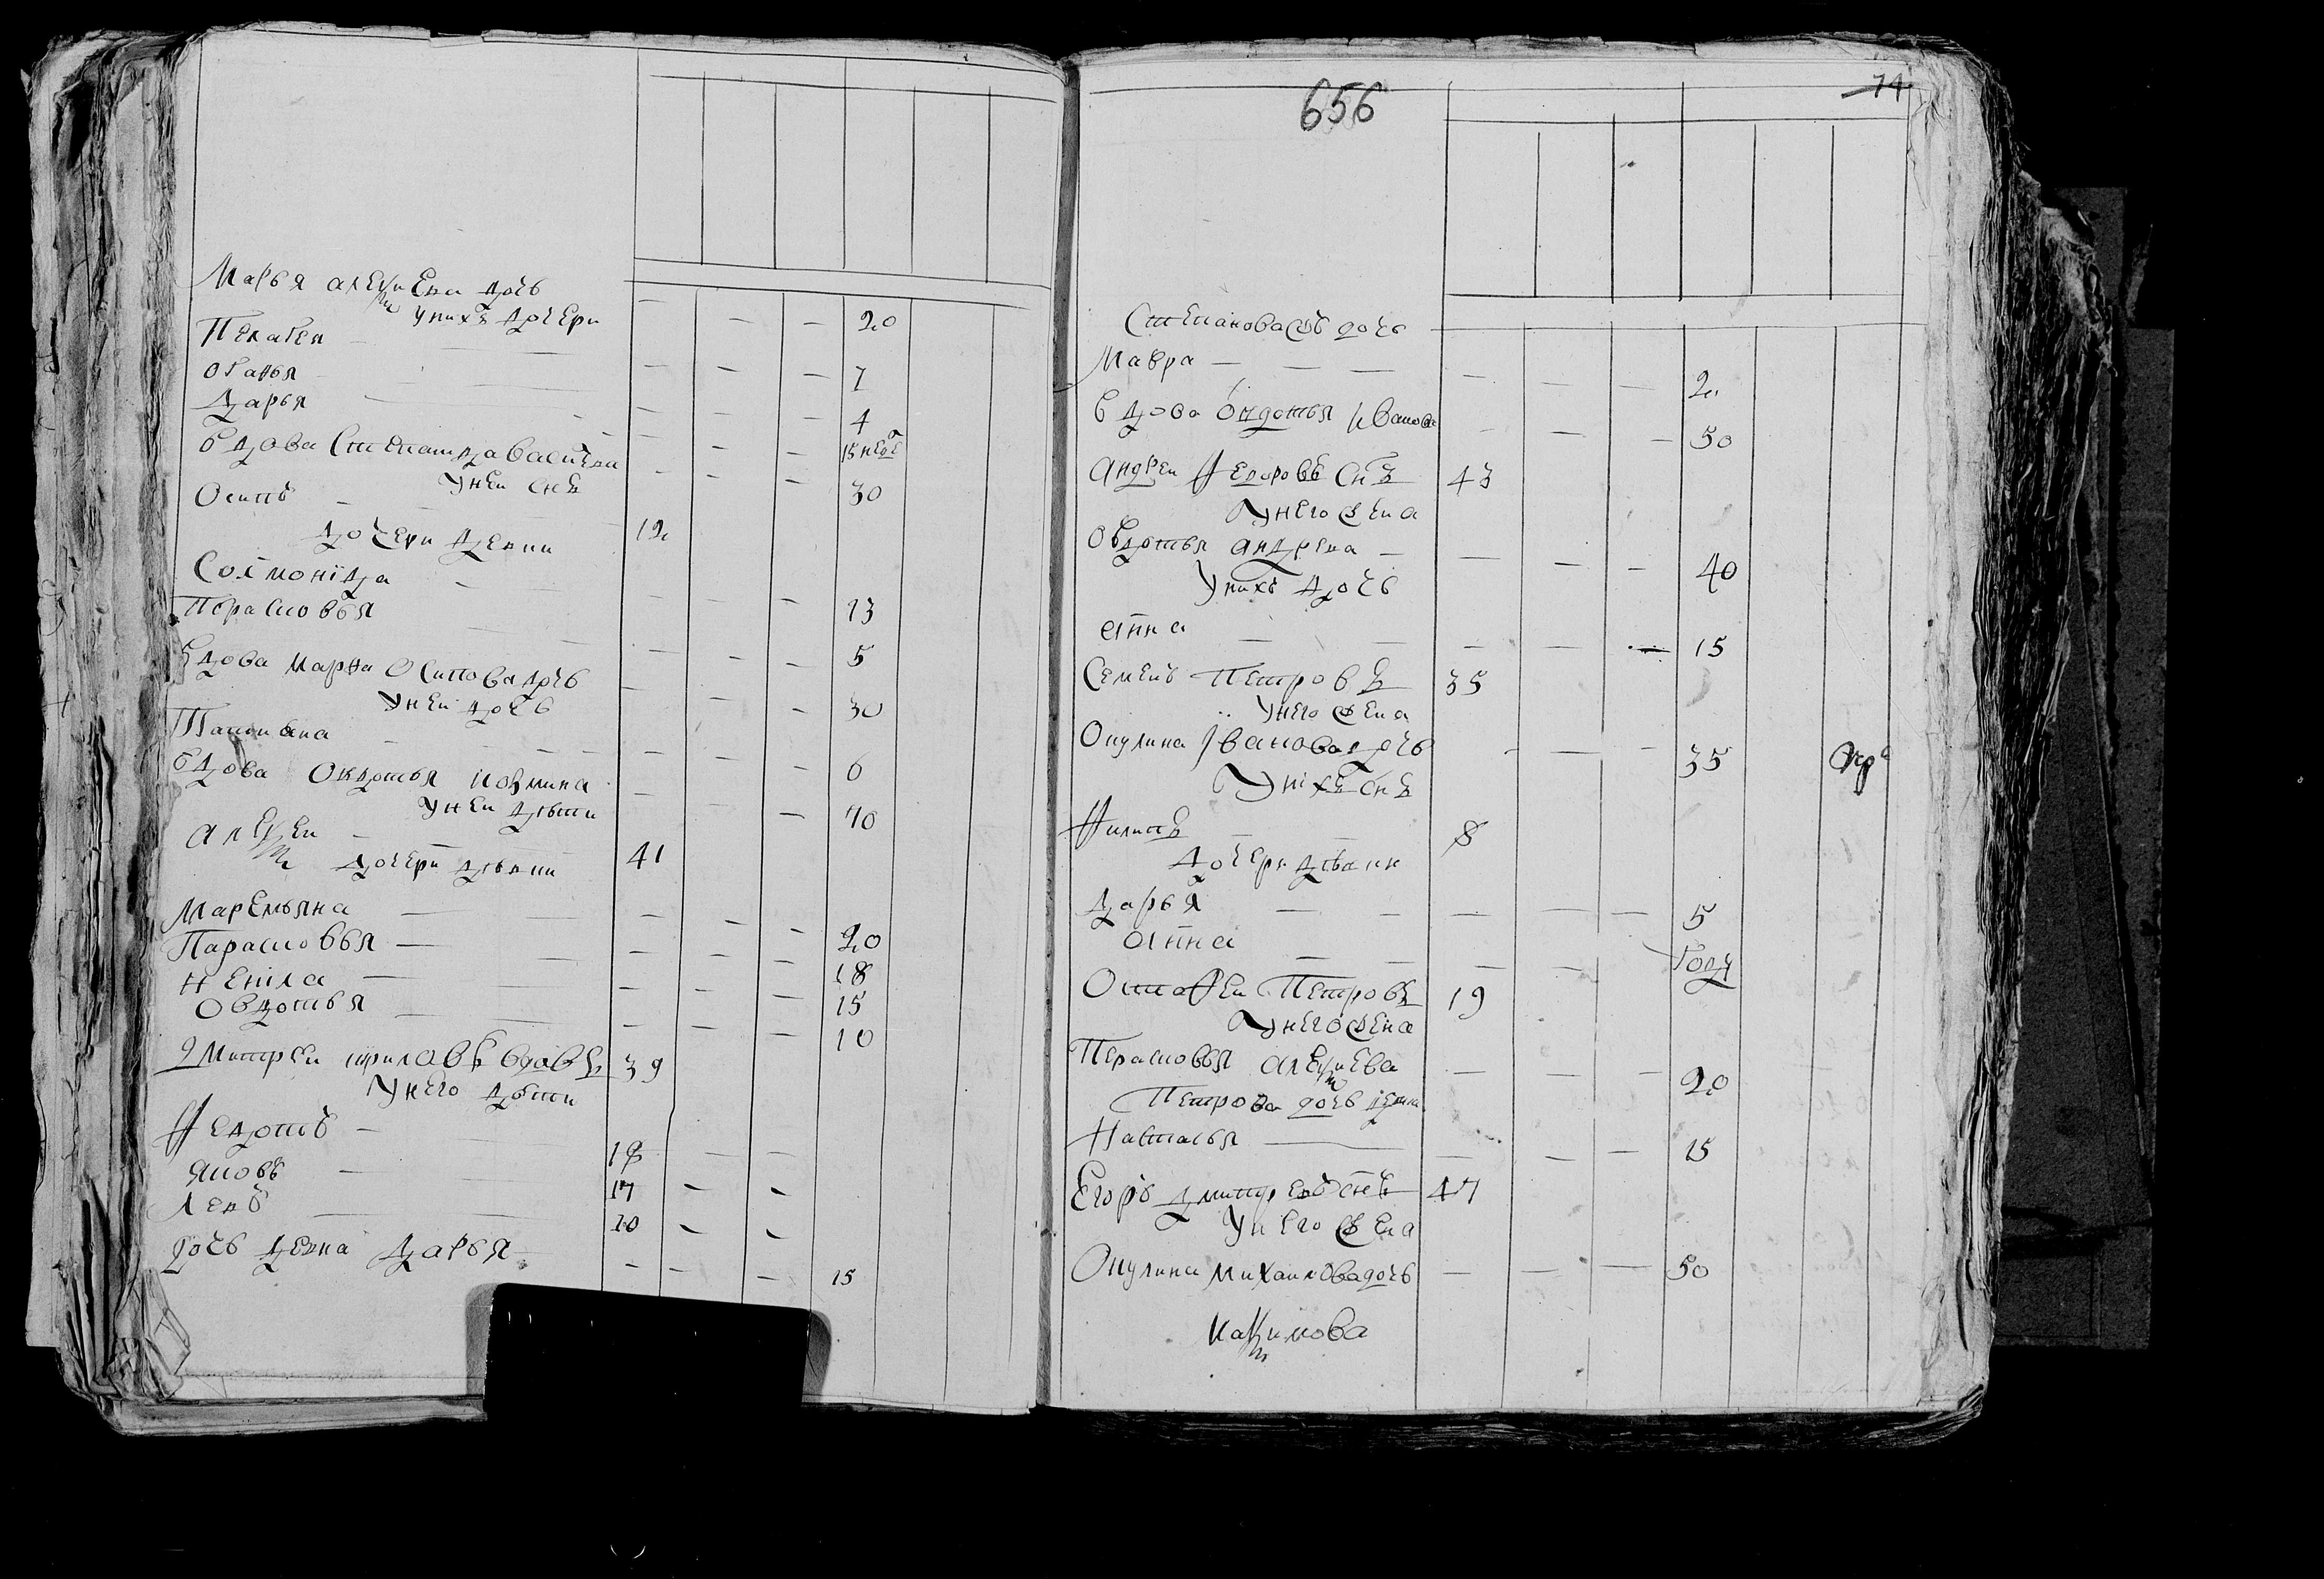 Марья алеѯиева дочь
20
у нихъ дочери
Пелагея
7
огафья
4
дарья
15 недѣ
вдова Степанида васильева
30
у неи снъ
Осипъ
12
дочери девки
Соломонида
13
Парасковья
5
вдова марфа Осипова дочь
30
у неи дочь
Татиана
6
вдова Овдотья козмина
70
у неи дѣти
алеѯеи
41
дочери дѣвки
Маремьяна
20
Парасковья
18
Ненила
15
Овдотья
10
дмитреи кириловъ вдовъ 39
у него дѣти
Федотъ
18
яковъ
17
левъ
10
дочь девка дарья
15
656
74
Степанова дочь
Мавра
2
вдова Овдотья Иванова
50
андреи Федоровъ снъ 43
у него жена
Овдотья андреева
40
у нихъ дочь
анна
15
Семенъ Петровъ 35
у него жена
Окулина Іванова дочь
35
у нихъ снъ
Филипъ
8
дочери дѣвки
дарья
5
анна
году
Остафеи Петровъ 19
у него жена
Парасковья алеѯиева
20
Петрова дочь девка
Настасья
15
Егоръ дмитревъ снъ 47
у него жена
Окулина михаилова дочь
50